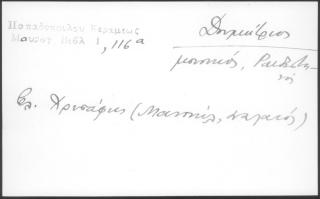 Παπαδοπούλου Κεραμεως
Μαυρογ Βιβλ 1, 116α
Δημήτριος
μοναχός, Ραιδεστη
νός
Βλ. Χρυσάφης (Μανουήλ, παλαιός)